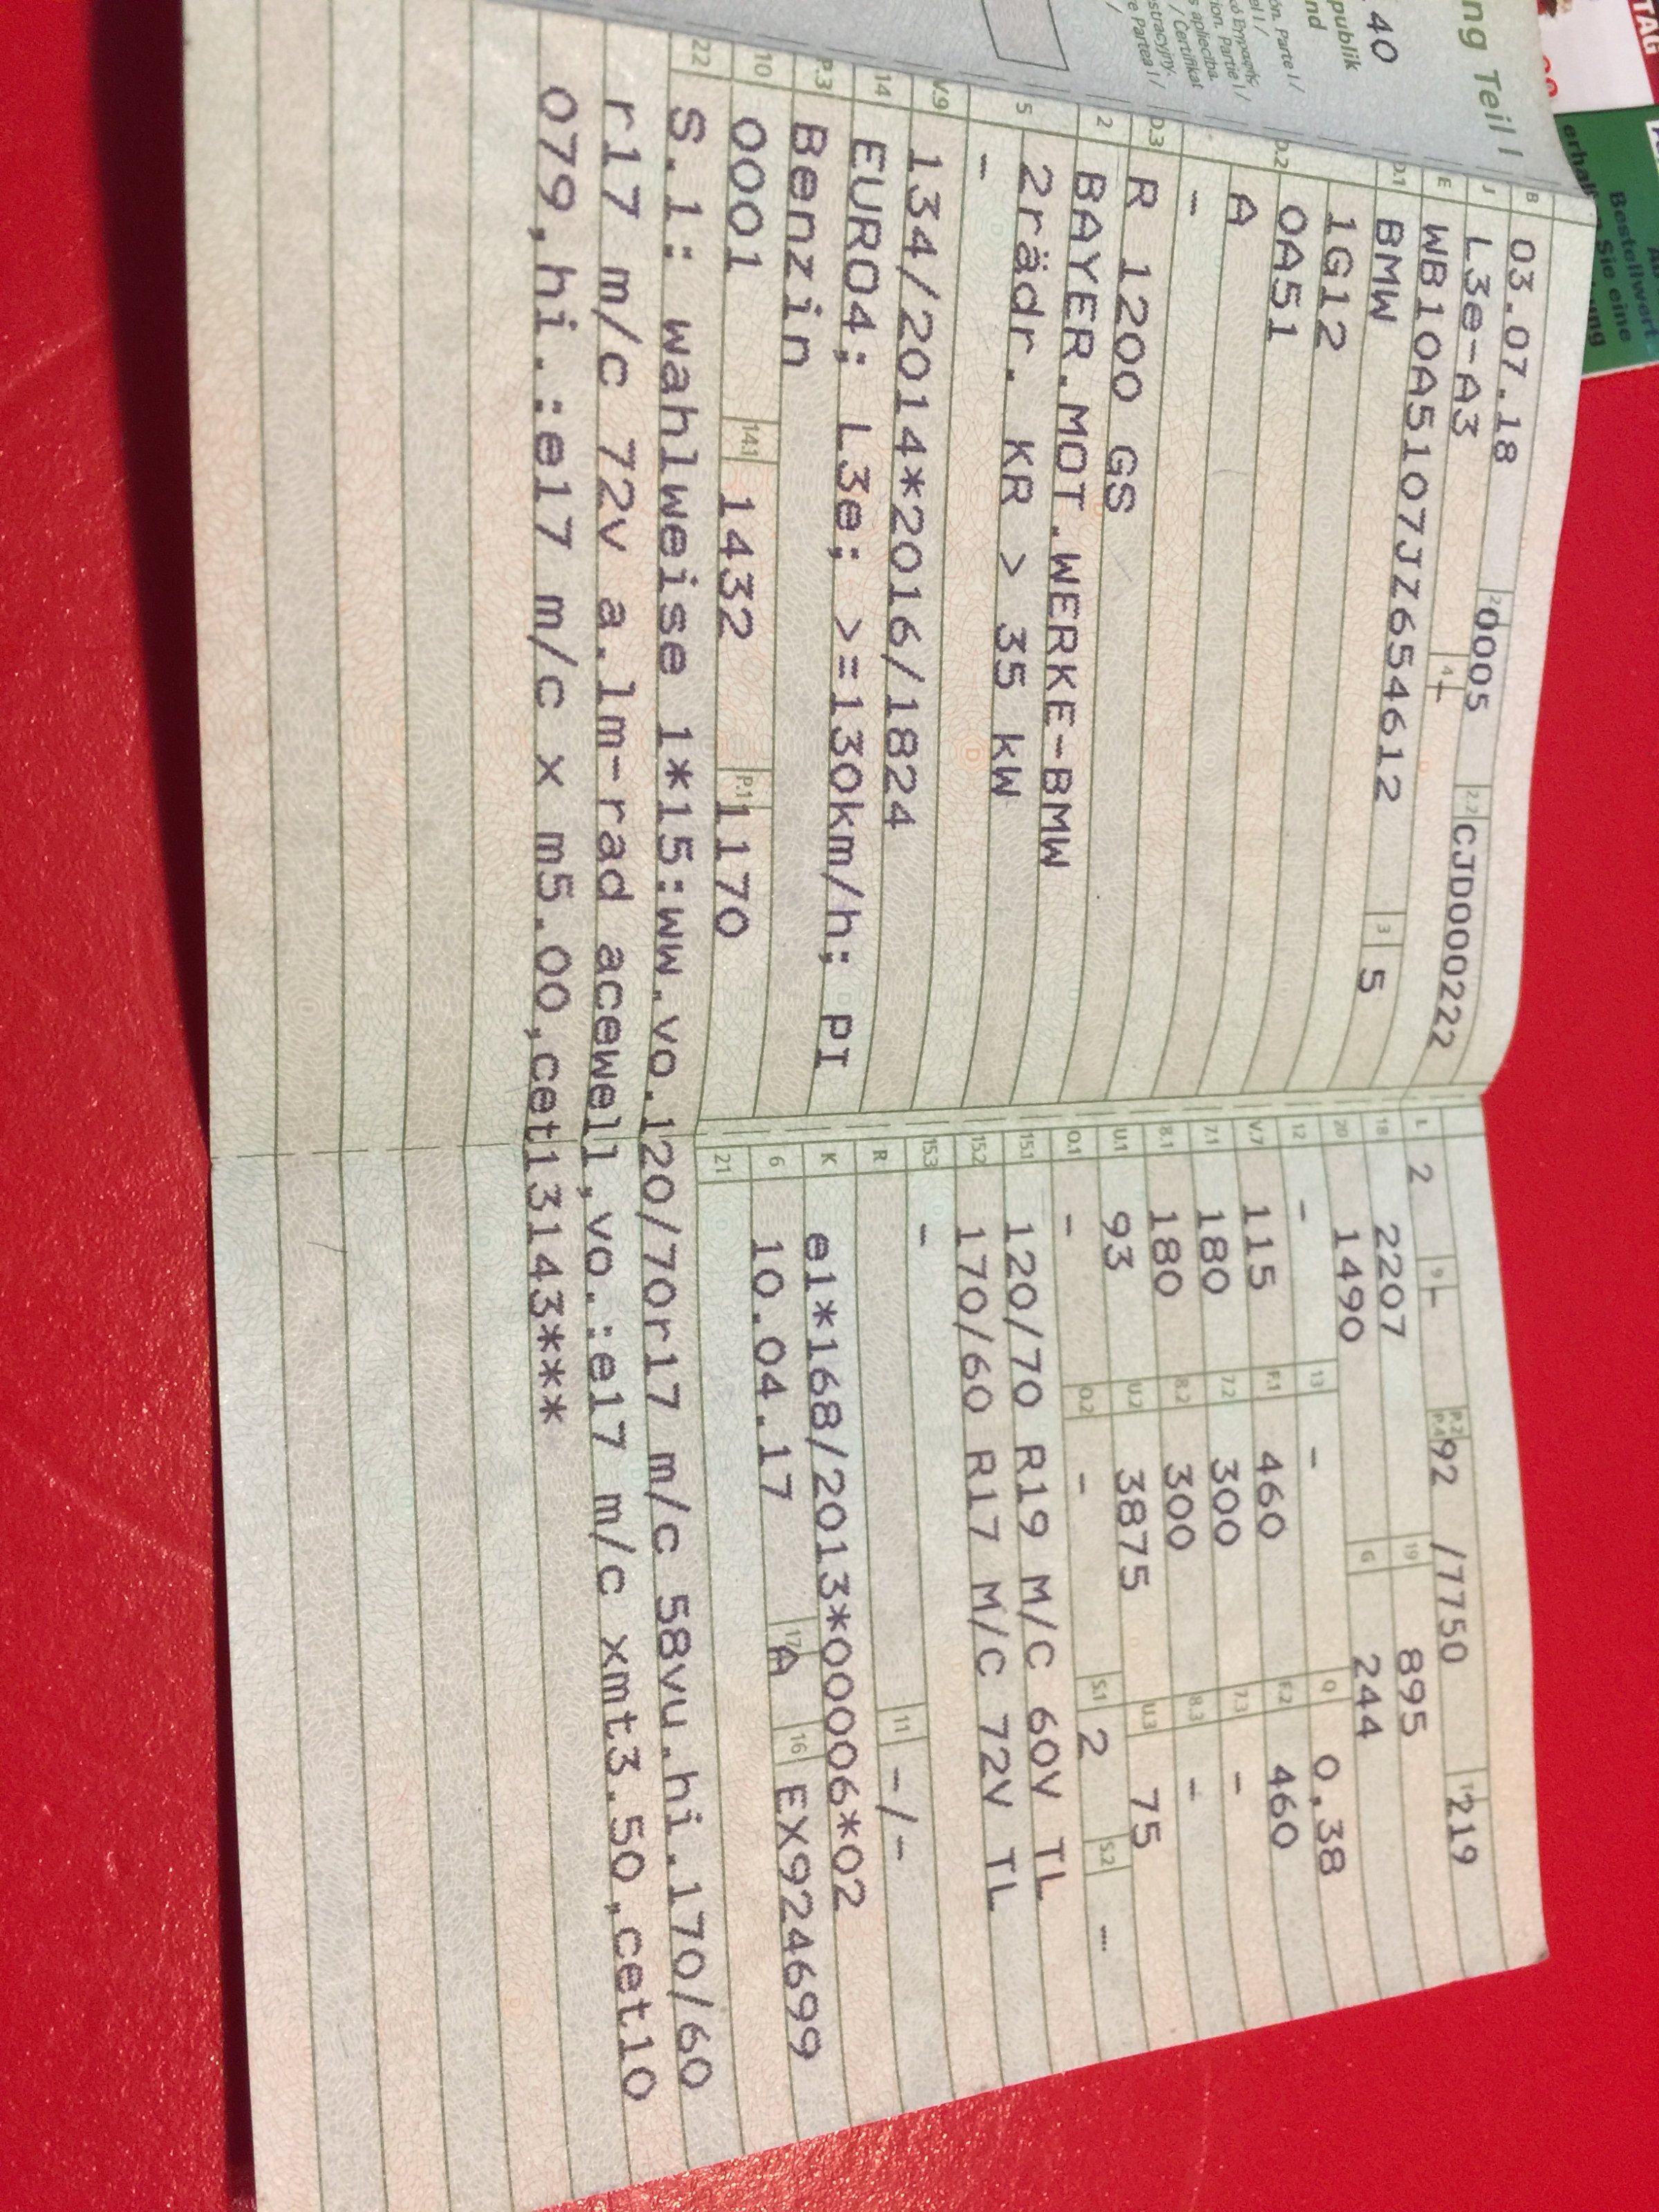 ng Teil I
40
publik
nd
ón. Parte I /
el I /
ion. Partie I /
/ Certifikat
e Partea I /
TAG
Bestellwert
Sie eine
B 03.07.18 2 0005 2.2 CJD000222
J L3e-A3 4 -
E WB10A5107JZ654612 3 5
D.1 BMW
1G12
D.2 0A51
A
-
D.3 R 1200 GS
2 BAYER.MOT.WERKE-BMW
5 2rädr. KR > 35 kW
-
V.9 134/2014*2016/1824
14 EURO4; L3e; >=130km/h; PI
P.3 Benzin
10 0001 14.1 1432 P.1 1170
L 2 9 - P.2 P.4 92 /7750 T 219
18 2207 19 895
20 1490 G 244
12 - 13 - Q 0,38
V.7 115 F.1 460 F.2 460
7.1 180 7.2 300 7.3 -
8.1 180 8.2 300 8.3 -
U.1 93 U.2 3875 U.3 75
O.1 - O.2 - S.1 2 S.2 -
15.1 120/70 R19 M/C 60V TL
15.2 170/60 R17 M/C 72V TL
15.3 -
R 11 -/-
K e1*168/2013*00006*02
6 10.04.17 17 A 16 EX924699
21
22 S.1: wahlweise 1*15:ww.vo.120/70r17 m/c 58vu.hi.170/60
r17 m/c 72v a.lm-rad acewell,vo.:e17 m/c xmt3.50,cet10
079,hi.:e17 m/c x m5.00,cet13143***